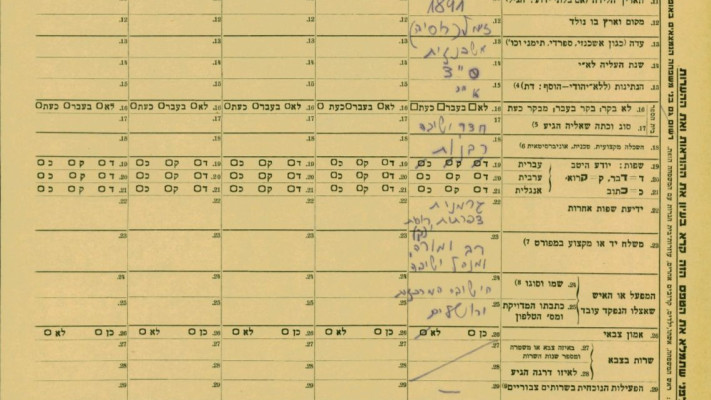 11. תאריך הלידה
1891
12. מקום וארץ בו נולד
(רוסיה)
13. עדה (כגון אשכנזי, ספרדי, תימני וכו')
אשכנזית
14. שנת העליה לא״י
15. הנתינות (ללא־יהודי—הוסף: דת) (4
א״י
16. לא בקר, בקר בעבר, מבקר כעת
לא בעבר כעת
לא בעבר כעת
לא בעבר כעת
לא בעבר כעת
לא בעבר כעת
17. סוג וכתה שאליה הגיע (5
ישיבה
18. השכלה מקצועית, טכנית, אוניברסיטאית (6
רבנות
שפות: יודע היטב
ד=דבר, ק=קרוא,
כ=כתוב
19. עברית
ד ק כ
ד ק כ
ד ק כ
ד ק כ
ד ק כ
20. ערבית
ד ק כ
ד ק כ
ד ק כ
ד ק כ
ד ק כ
21. אנגלית
ד ק כ
ד ק כ
ד ק כ
ד ק כ
ד ק כ
22. ידיעת שפות אחרות
גרמנית
צרפתית, רוסית
23. משלח יד או מקצוע במפורט (7
רב ומורה,
ומנהל ישיבה
המפעל או האיש
שאצלו הנפקד עובד
24. שמו וסוגו (8
הישיבה המרכזית
25. כתבתו המדויקת
ומס׳ הטלפון
ירושלים
26. אמון צבאי
כן לא
כן לא
כן לא
כן לא
כן לא
שרות בצבא
27. באיזה צבא או משטרה
ומספר שנות השרות
28. לאיזו דרגה הגיע
29. הפעילות הנוכחית בשרותים צבוריים (9
—